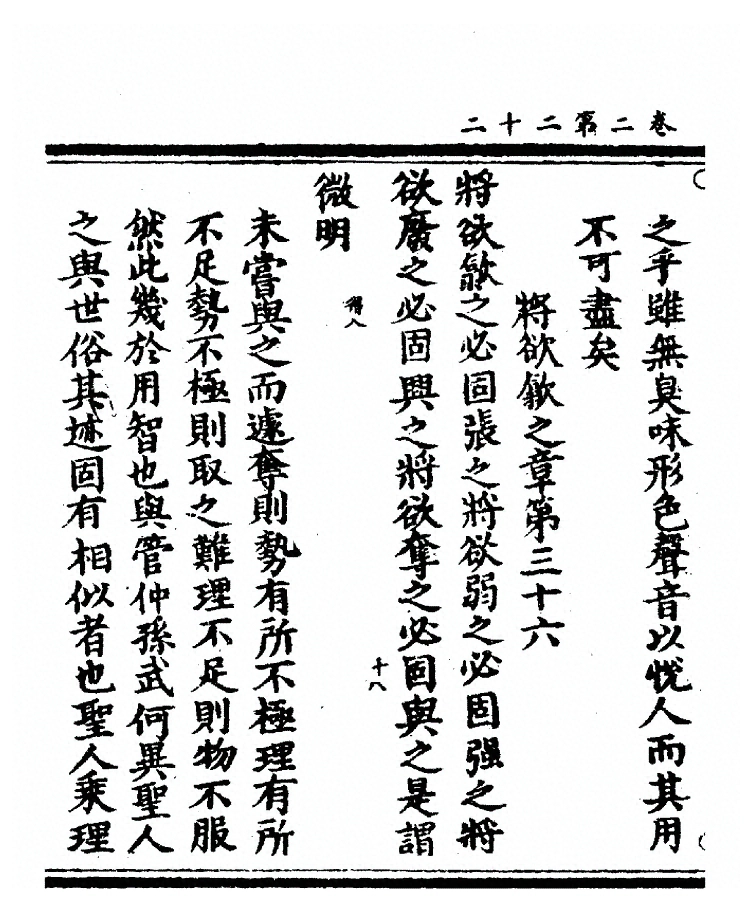 卷二第二十二
之乎雖無臭味形色聲音以悅人而其用
不可盡矣
將欲歙之章第三十六
將欲歙之必固張之將欲弱之必固强之將
欲廢之必固興之將欲奪之必固與之是謂
十八
微明
未嘗與之而遽奪則勢有所不極理有所
不足勢不極則取之難理不足則物不服
然此幾於用智也與管仲孫武何異聖人
之與世俗其迹固有相似者也聖人乘理